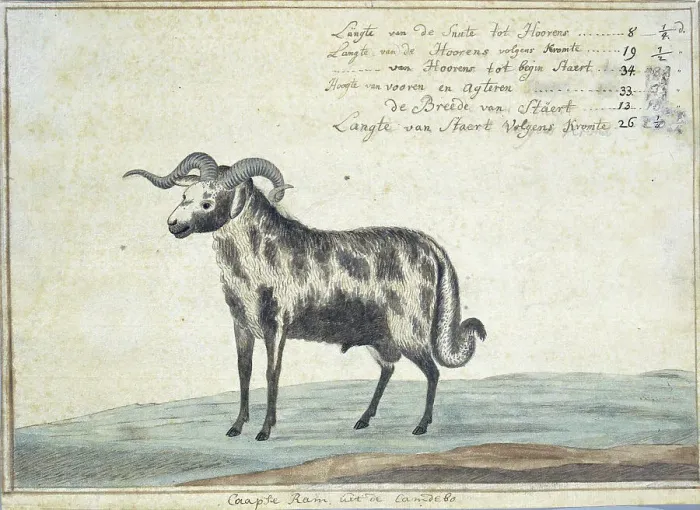 Lüngte van de Snute tot Hoorens ......... 8 1/4 d.
Langte van de Hoorens volgens Kromte ... 19 1/2 "
........ van Hoorens tot begin Staert .... 34
Hoogte van vooren en agteren ........... 33
de Breede van Stäert ........ 13
Langte van Staert Volgens Kromte 26 1/2
Caapse Ram, uit de Camdebo